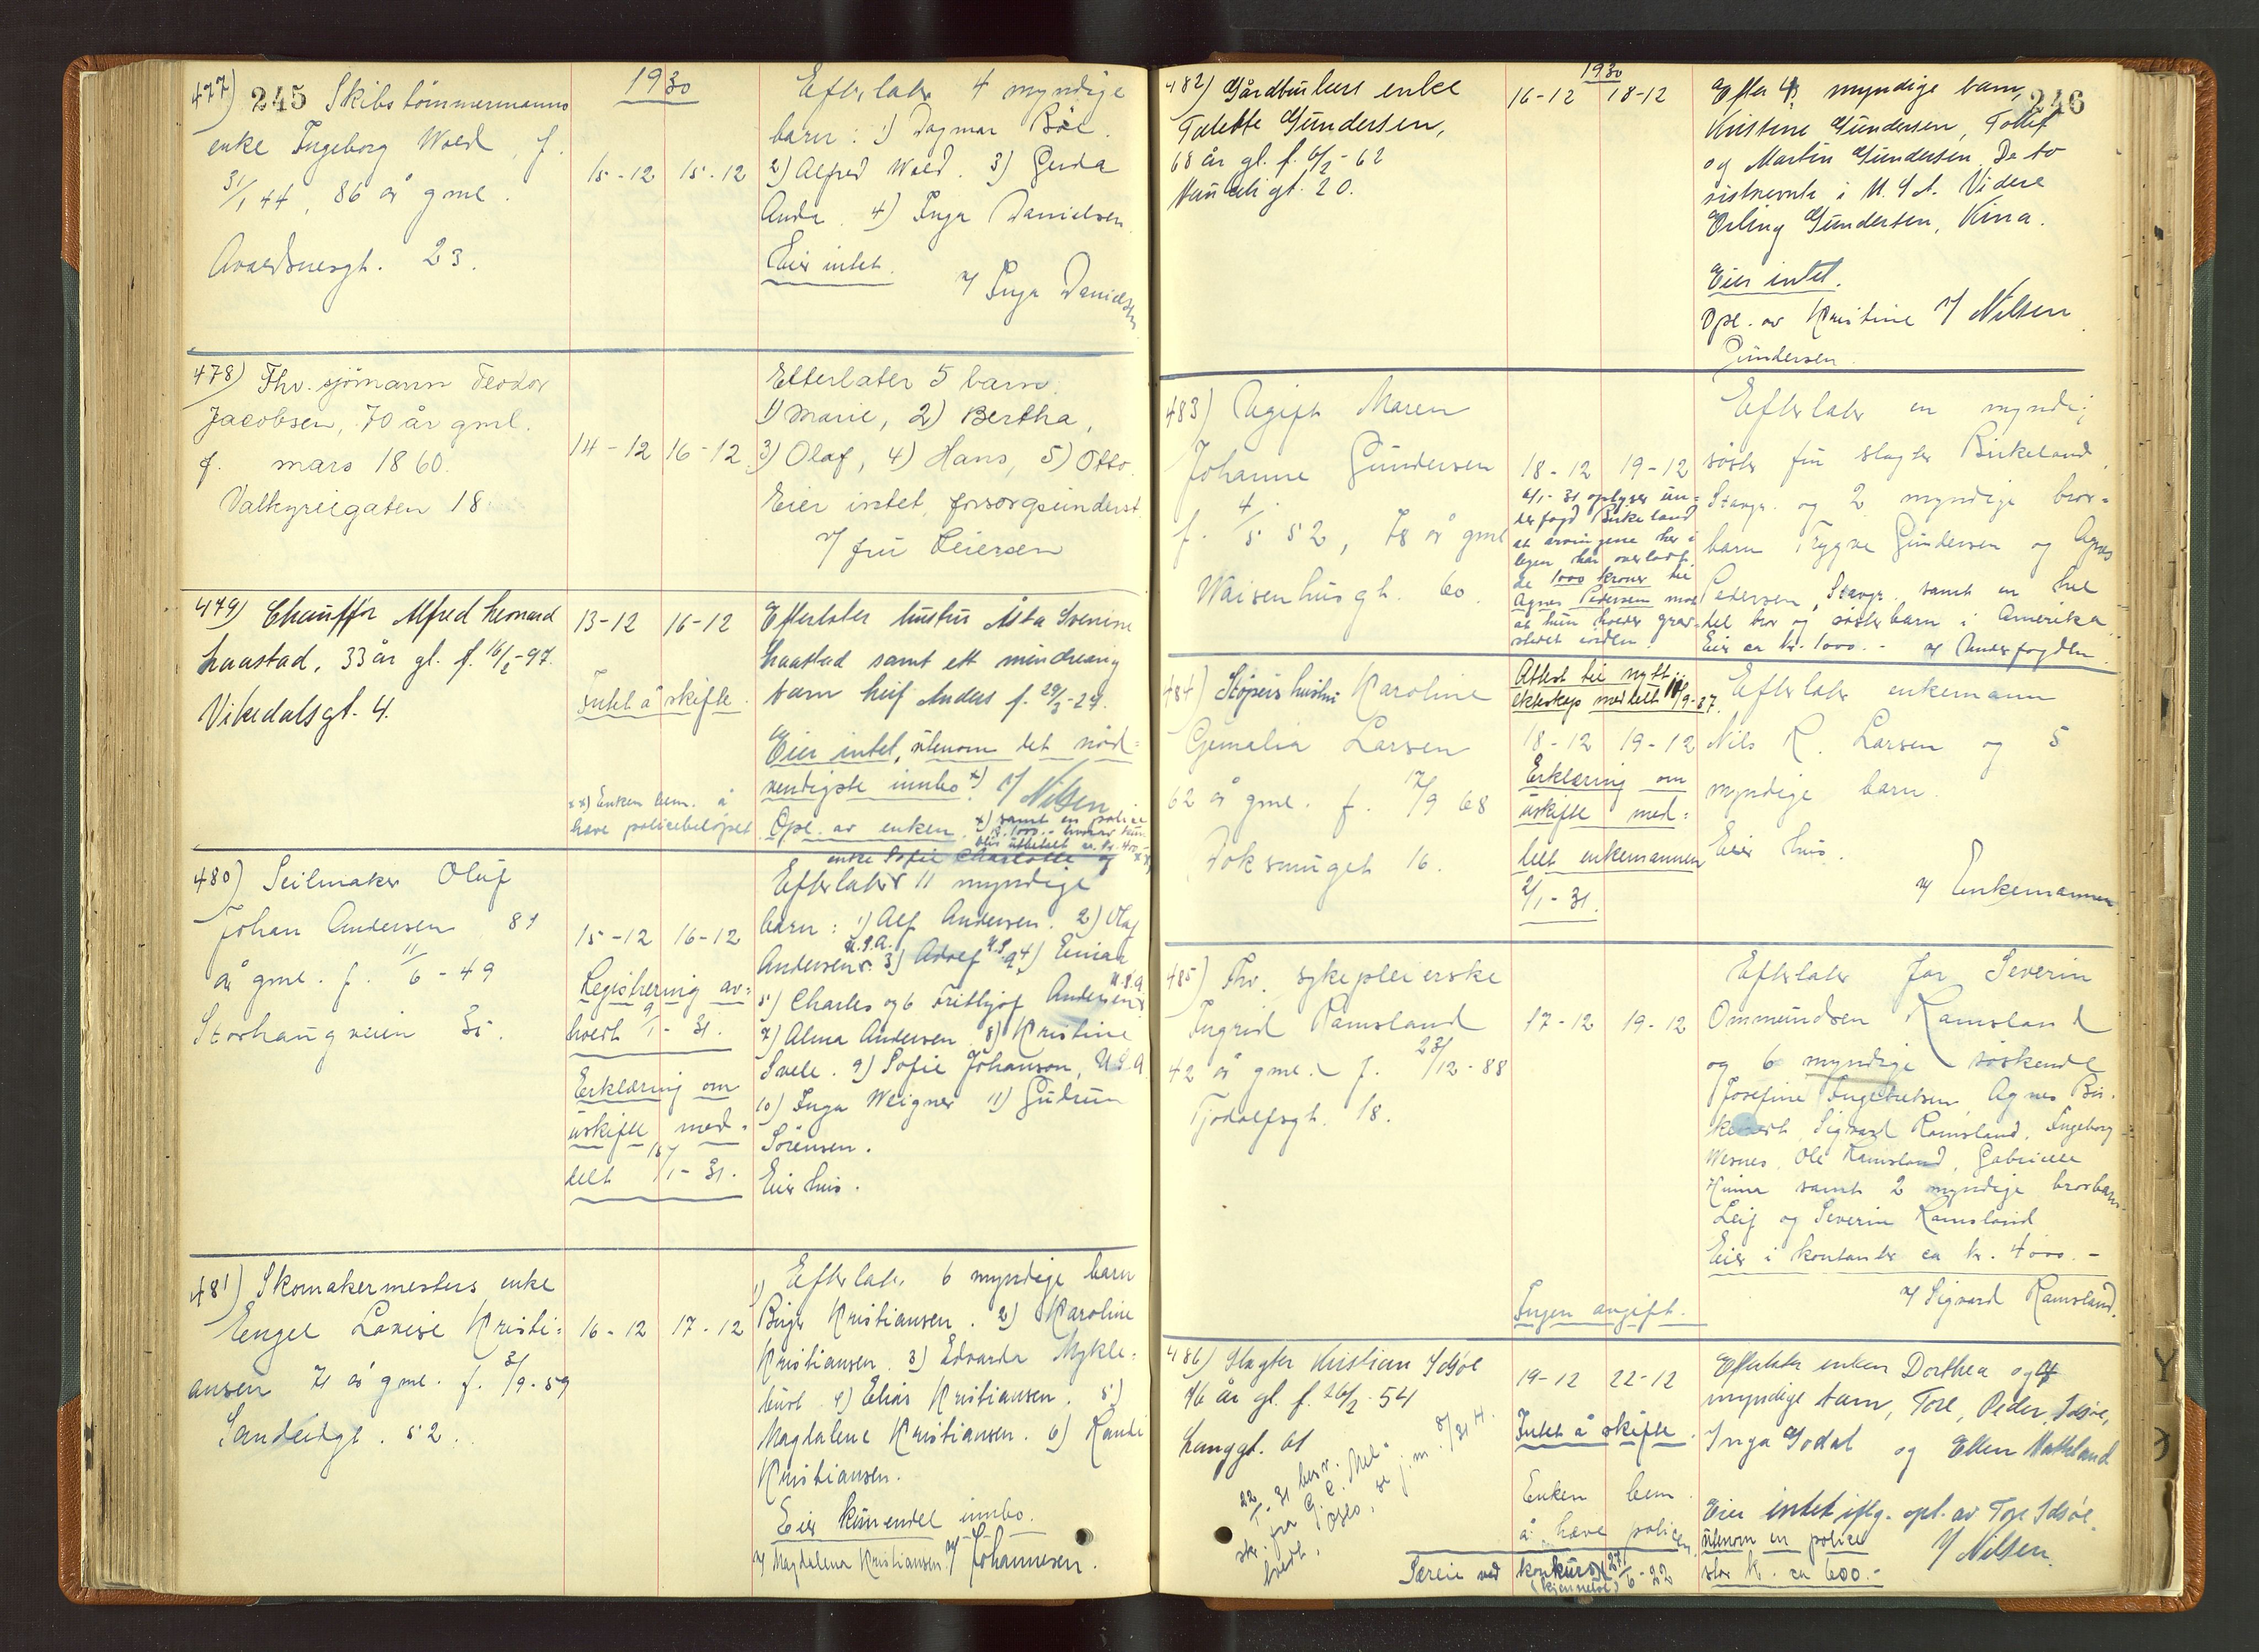 477) 245 Skibstömmermanns
enke Ingeborg Wold, f.
31/1 44, 86 år gml.
Avaldsnesgt. 23.
1930
15-12 15-12
Efterlater 4 myndige
barn: 1) Dagmar Böe.
2) Alfred Wold. 3) Gerda
Anda. 4) Inga Danielsen
Eier intet.
v/ Inga Danielsen
478) Fhv. sjömann Teodor
Jacobsen, 70 år gml.
f. mars 1860.
Valkyriegaten 18
14-12 16-12
Efterlater 5 barn.
1) Marie, 2) Bertha,
3) Olaf, 4) Hans, 5) Otto.
Eier intet, forsorgsunderst.
v/ fru Leiersen
479) Chauffør Alfred Leonard
Haastad, 33 år gl. f. 16/2-97.
Vikedalsgt. 4.
13-12 16-12
Intet å skifte.
xx) Enken bem. å
heve policebeløpet
Efterlater hustru Asta Severine
Haastad samt ett mindreårig
barn Leif Anders f. 29/3-29.
Eier intet, utenom det nød-
vendigste innbo x) v/ Nilsen
Opl. av enken. x) samt en police
kr. 1000.- hvorav kun
blir utbetalt ca. kr. 400.- xx)
480) Seilmaker Oluf
Johan Andersen 81
år gml. f. 11/6-49
Storhaugveien 35.
15-12 16-12
Registrering av-
holdt 9/1-31.
Erklæring om
uskifte med-
delt 15/1-31.
enke Sofie Charlotte og
Efterlater 11 myndige
barn: 1) Alf Andersen. 2) Olaf
Andersen U.S.A. 3) Adolf U.S.A. 4) Einar
5) Charles og 6 Frithjof Andersen U.S.A.
7) Alma Andersen. 8) Kristine
Svele. 9) Sofie Johanson, U.S.A
10) Inga Weigner 11) Gudrun
Sörensen.
Eier hus.
481) Skomakermesters enke
Engel Lovise Kristi-
ansen 71 år gml. f. 3/9-59
Sandeidgt. 52.
16-12 17-12
Efterlater 6 myndige barn
1) Birger Kristiansen. 2) Karoline
Kristiansen. 3) Edvarda Mykle-
bust 4) Elias Kristiansen. 5)
Magdalene Kristiansen. 6) Randi
Kristiansen.
Eier kun endel innbo.
v/ Magdalena Kristiansen. v/ Johannesen.
482) Gårdbrukers enke
Talette Gundersen,
68 år gl. f. 6/2-62
Nauteligt. 20.
1930
16-12 18-12
Efter 4 myndige barn, 246
Kristine Gundersen, Tollef
og Martin Gundersen. De to
sistnevnte i U.S.A. Videre
Erling Gundersen, Kina.
Eier intet.
Opl. av Kristine v/ Nilsen
Gundersen.
483) Ugift Maren
Johanne Gundersen
f. 4/5 52, 78 år gml
Waisenhusgt. 60.
18-12 19-12
oplyser un-
derfogd Birkeland
at arvingene her i
byen har overlatt
de 1000 kroner til
Agnes Pedersen mot
at hun holder grav-
stedet iorden.
Efterlater en myndig
søster fru slagter Birkeland
Stavgr. og 2 myndige bror-
barn Trygve Gundersen og Agnes
Pedersen, Stavgr. samt en hel
del bror og søsterbarn i Amerika.
Eier ca kr. 1000.- v/ Underfogden.
484) Støpers hustru Karoline
Gemalia Larsen
62 år gml. f. 17/9 68
Doksmuget 16.
Attest til nytt
ekteskap meddelt 11/9-37.
18-12 19-12
Erklæring om
uskifte med-
delt enkemannen
2/1-31.
Efterlater enkemann
Nils R. Larsen og 5
myndige barn.
Eier hus.
v/ Enkemannen.
485) Fhv. sykepleierske
Ingrid Ramsland
42 år gml. f. 23/12-88
Tjodolfsgt. 18.
17-12 19-12
Ingen avgift.
Efterlater far Severin
Ommundsen Ramsland
og 6 myndige søskende
Josefine Ingebretsen, Agnes Bir-
, Sigvard Ramsland, Ingeborg
Wesnes, Ole Ramsland, Gabrielle
samt 2 myndige brorbarn
Leif og Severin Ramsland
Eier i kontanter ca kr. 4000.-
v/ Sigvard Ramsland.
486) Slagter Kristian Idsøe
76 år gl. f. 26/2-54
Langgt. 61
22/1-31 besv.
skr. fra
Oslo,
19-12 22-12
Intet å skifte.
Enken bem.
å heve policen
Efterlater enken Dorthea og 4
myndige barn, Tore, Peder Idsøe,
Inga Godal og Ellen Natland
Eier intet iflg. opl. av Tore Idsøe,
utenom en police v/ Nilsen.
stor kr. ca 600.-
Særeie ved konkurs 27/6-22
(kjennelse)